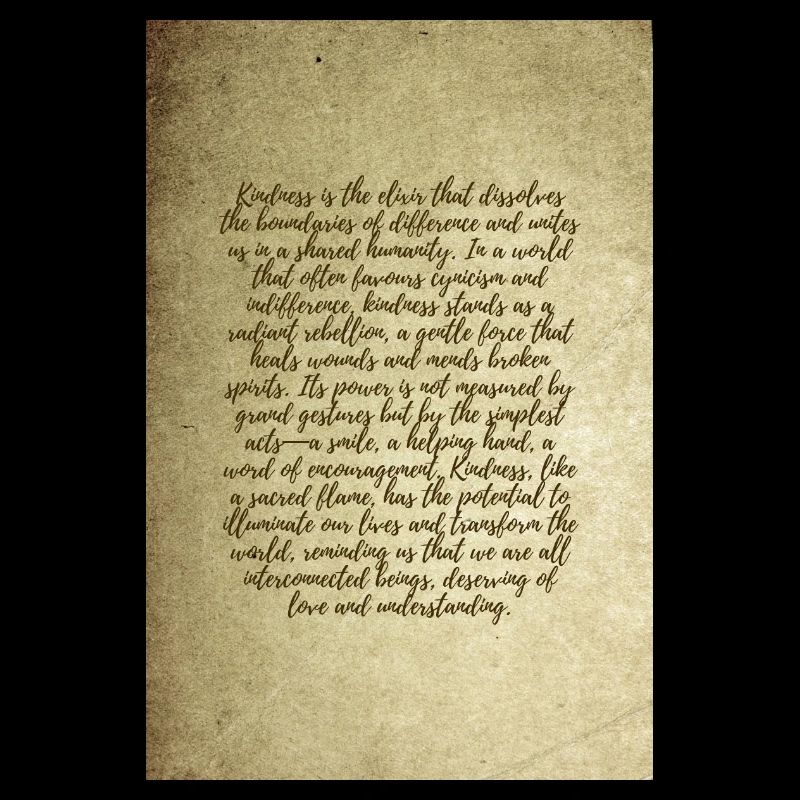 Kindness is the elixir that dissolves
the boundaries of difference and unites
us in a shared humanity. In a world
that often favours cynicism and
indifference, kindness stands as a
radiant rebellion, a gentle force that
heals wounds and mends broken
spirits. Its power is not measured by
grand gestures but by the simplest
acts—a smile, a helping hand, a
word of encouragement. Kindness, like
a sacred flame, has the potential to
illuminate our lives and transform the
world, reminding us that we are all
interconnected beings, deserving of
love and understanding.